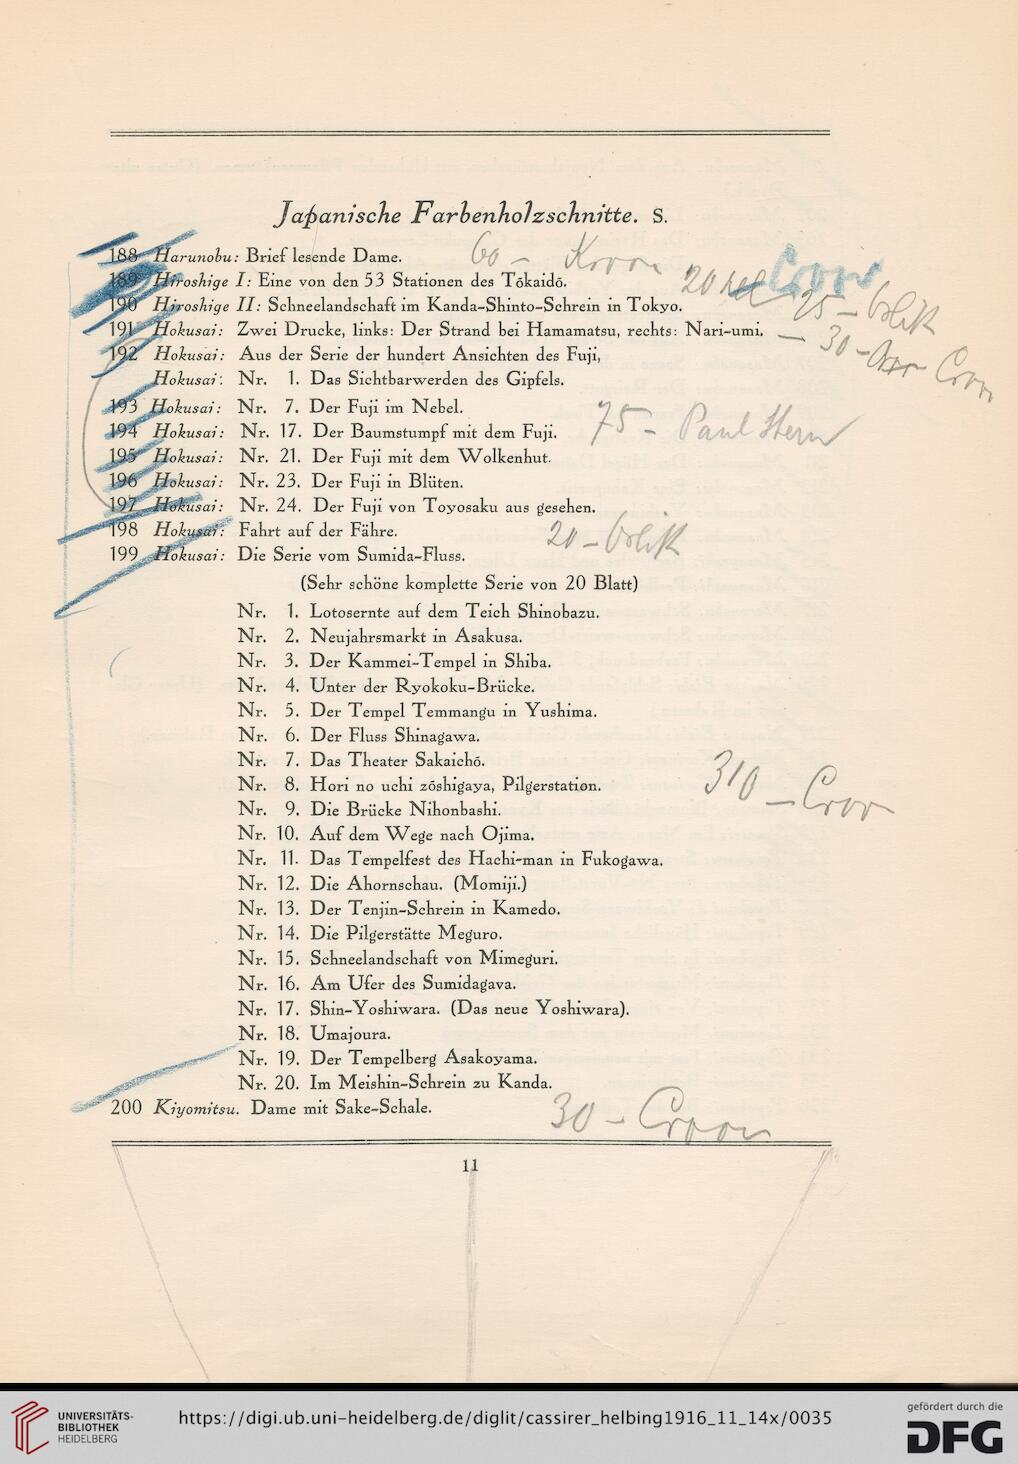 Japanische Farbenholzschnitte. S.
188 Harunobu: Brief lesende Dame. 60 –
189 Hiroshige I: Eine von den 53 Stationen des Tôkaidô. 20
190 Hiroshige II: Schneelandschaft im Kanda-Shinto-Schrein in Tokyo.
191 Hokusai: Zwei Drucke, links: Der Strand bei Hamamatsu, rechts: Nari-umi. – 30 –
192 Hokusai: Aus der Serie der hundert Ansichten des Fuji,
Hokusai: Nr. 1. Das Sichtbarwerden des Gipfels.
193 Hokusai: Nr. 7. Der Fuji im Nebel.
194 Hokusai: Nr. 17. Der Baumstumpf mit dem Fuji. 75 – Paul Stern
195 Hokusai: Nr. 21. Der Fuji mit dem Wolkenhut.
196 Hokusai: Nr. 23. Der Fuji in Blüten.
197 Hokusai: Nr. 24. Der Fuji von Toyosaku aus gesehen.
198 Hokusai: Fahrt auf der Fähre. 20 –
199 Hokusai: Die Serie vom Sumida-Fluss.
(Sehr schöne komplette Serie von 20 Blatt)
Nr. 1. Lotosernte auf dem Teich Shinobazu.
Nr. 2. Neujahrsmarkt in Asakusa.
Nr. 3. Der Kammei-Tempel in Shiba.
Nr. 4. Unter der Ryokoku-Brücke.
Nr. 5. Der Tempel Temmangu in Yushima.
Nr. 6. Der Fluss Shinagawa.
Nr. 7. Das Theater Sakaichô.
Nr. 8. Hori no uchi zôshigaya, Pilgerstation. 310 –
Nr. 9. Die Brücke Nihonbashi.
Nr. 10. Auf dem Wege nach Ojima.
Nr. 11. Das Tempelfest des Hachi-man in Fukogawa.
Nr. 12. Die Ahornschau. (Momiji.)
Nr. 13. Der Tenjin-Schrein in Kamedo.
Nr. 14. Die Pilgerstätte Meguro.
Nr. 15. Schneelandschaft von Mimeguri.
Nr. 16. Am Ufer des Sumidagava.
Nr. 17. Shin-Yoshiwara. (Das neue Yoshiwara).
Nr. 18. Umajoura.
Nr. 19. Der Tempelberg Asakoyama.
Nr. 20. Im Meishin-Schrein zu Kanda.
200 Kiyomitsu. Dame mit Sake-Schale. 30 –
11
UNIVERSITÄTS-
BIBLIOTHEK
HEIDELBERG
https://digi.ub.uni-heidelberg.de/diglit/cassirer_helbing1916_11_14x/0035
gefördert durch die
DFG